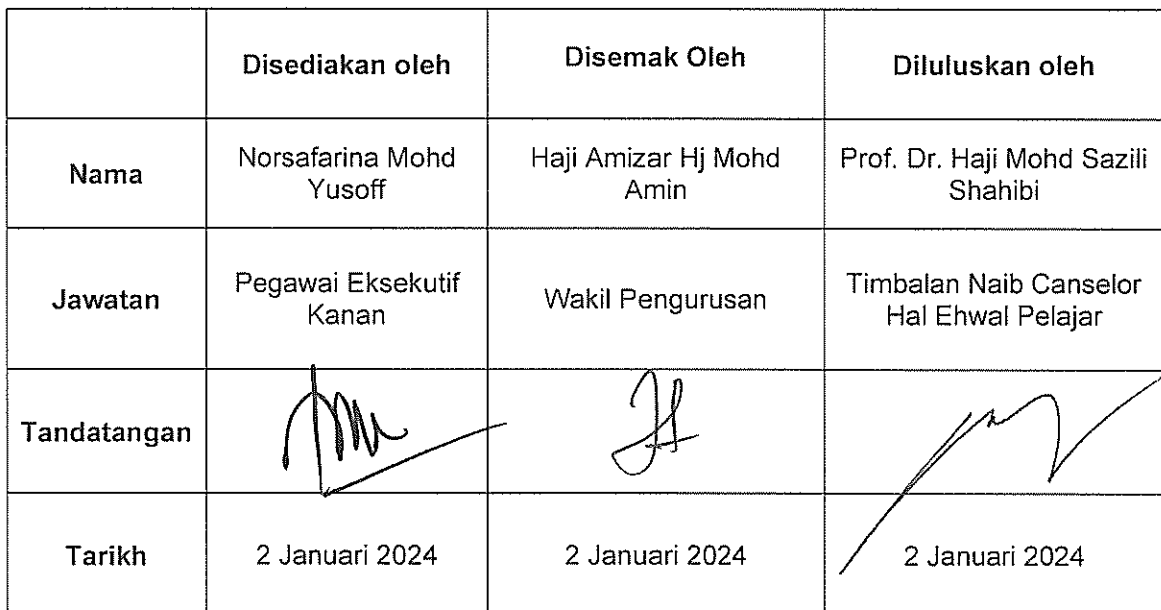 Disediakan oleh Disemak Oleh Diluluskan oleh
Nama Norsafarina Mohd Haji Amizar Hj Mohd Prof. Dr. Haji Mohd Sazili
Yusoff Amin Shahibi
Jawatan Pegawai Eksekutif Wakil Pengurusan Timbalan Naib Canselor
Kanan Hal Ehwal Pelajar
Tandatangan
Tarikh 2 Januari 2024 2 Januari 2024 2 Januari 2024